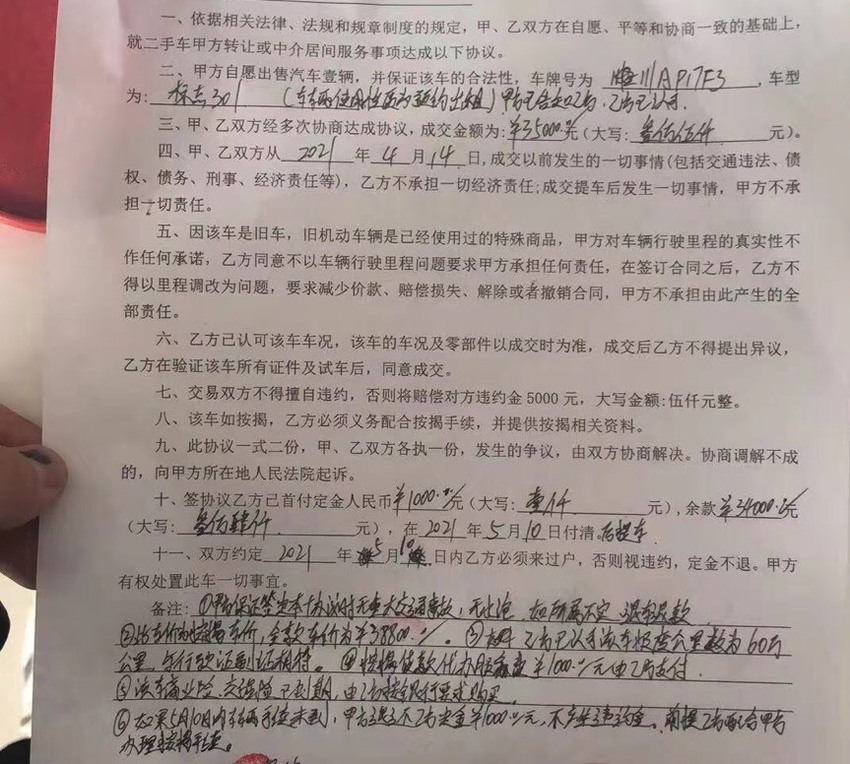 一、依据相关法律、法规和规章制度的规定，甲、乙双方在自愿、平等和协商一致的基础上，
就二手车甲方转让或中介居间服务事项达成以下协议。
二、甲方自愿出售汽车壹辆，并保证该车的合法性，车牌号为 川AP17F3，车型
为：标志301（车辆使用性质为预约出租）甲方已告知乙方，乙方已认可.
三、甲、乙双方经多次协商达成协议，成交金额为：¥35000.元（大写：叁万伍仟 元）。
四、甲、乙双方从 2021 年 4 月 14 日，成交以前发生的一切事情(包括交通违法、债
权、债务、刑事、经济责任等)，乙方不承担一切经济责任;成交提车后发生一切事情，甲方不承
担一切责任。
五、因该车是旧车，旧机动车辆是已经使用过的特殊商品，甲方对车辆行驶里程的真实性不
作任何承诺，乙方同意不以车辆行驶里程问题要求甲方承担任何责任，在签订合同之后，乙方不
得以里程调改为问题，要求减少价款、赔偿损失、解除或者撤销合同，甲方不承担由此产生的全
部责任。
六、乙方已认可该车车况，该车的车况及零部件以成交时为准，成交后乙方不得提出异议，
乙方在验证该车所有证件及试车后，同意成交。
七、交易双方不得擅自违约，否则将赔偿对方违约金 5000 元，大写金额:伍仟元整。
八、该车如按揭，乙方必须义务配合按揭手续，并提供按揭相关资料。
九、此协议一式二份，甲、乙双方各执一份，发生的争议，由双方协商解决。协商调解不成
的，向甲方所在地人民法院起诉。
十、签协议乙方已首付定金人民币¥1000.元（大写：壹仟 元），余款¥34000.元
（大写：叁万肆仟 元），在 2021 年 5 月 10 日付清后提车
十一、双方约定 2021 年 5 月 10 日内乙方必须来过户，否则视违约，定金不退。甲方
有权处置此车一切事宜。
备注：①甲方保证签定本协议时无重大交通事故，无水泡，如所属不实，退车退款
②此车价为按揭车价，全款车价为¥38800.元。③乙方已认可该车表公里数为60万
公里，与行驶证相符。④按揭贷款代办服务费¥1000.元由乙方支付.
⑤该车商业险、交强险已到期，由乙方按银行要求购买.
⑥如果5月10日内车辆手续未到，甲方退还乙方定金¥1000.元，不产生违约金。前提乙方配合甲方
办理按揭手续。